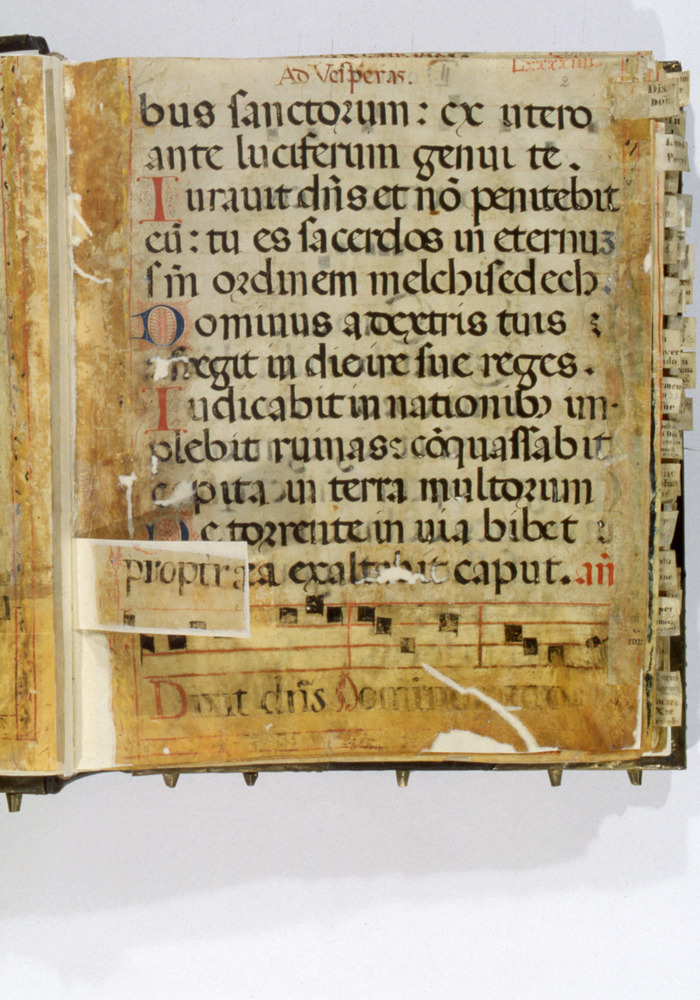 Ad Vesperas.
bus sanctorum: ex utero
ante luciferum genui te.
Iurauit dn̄s et nō penitebit
eū: tu es sacerdos in eternuꝫ
sm̄ ordinem melchisedech.
Dominus a dextris tuis :
regit in die ire sue reges.
Iudicabit in nationibꝰ im-
plebit ruinas: cōquassabit
capita in terra multorum
De torrente in uia bibet :
propterea exaltabit caput. añ
Dixit dn̄s Domino